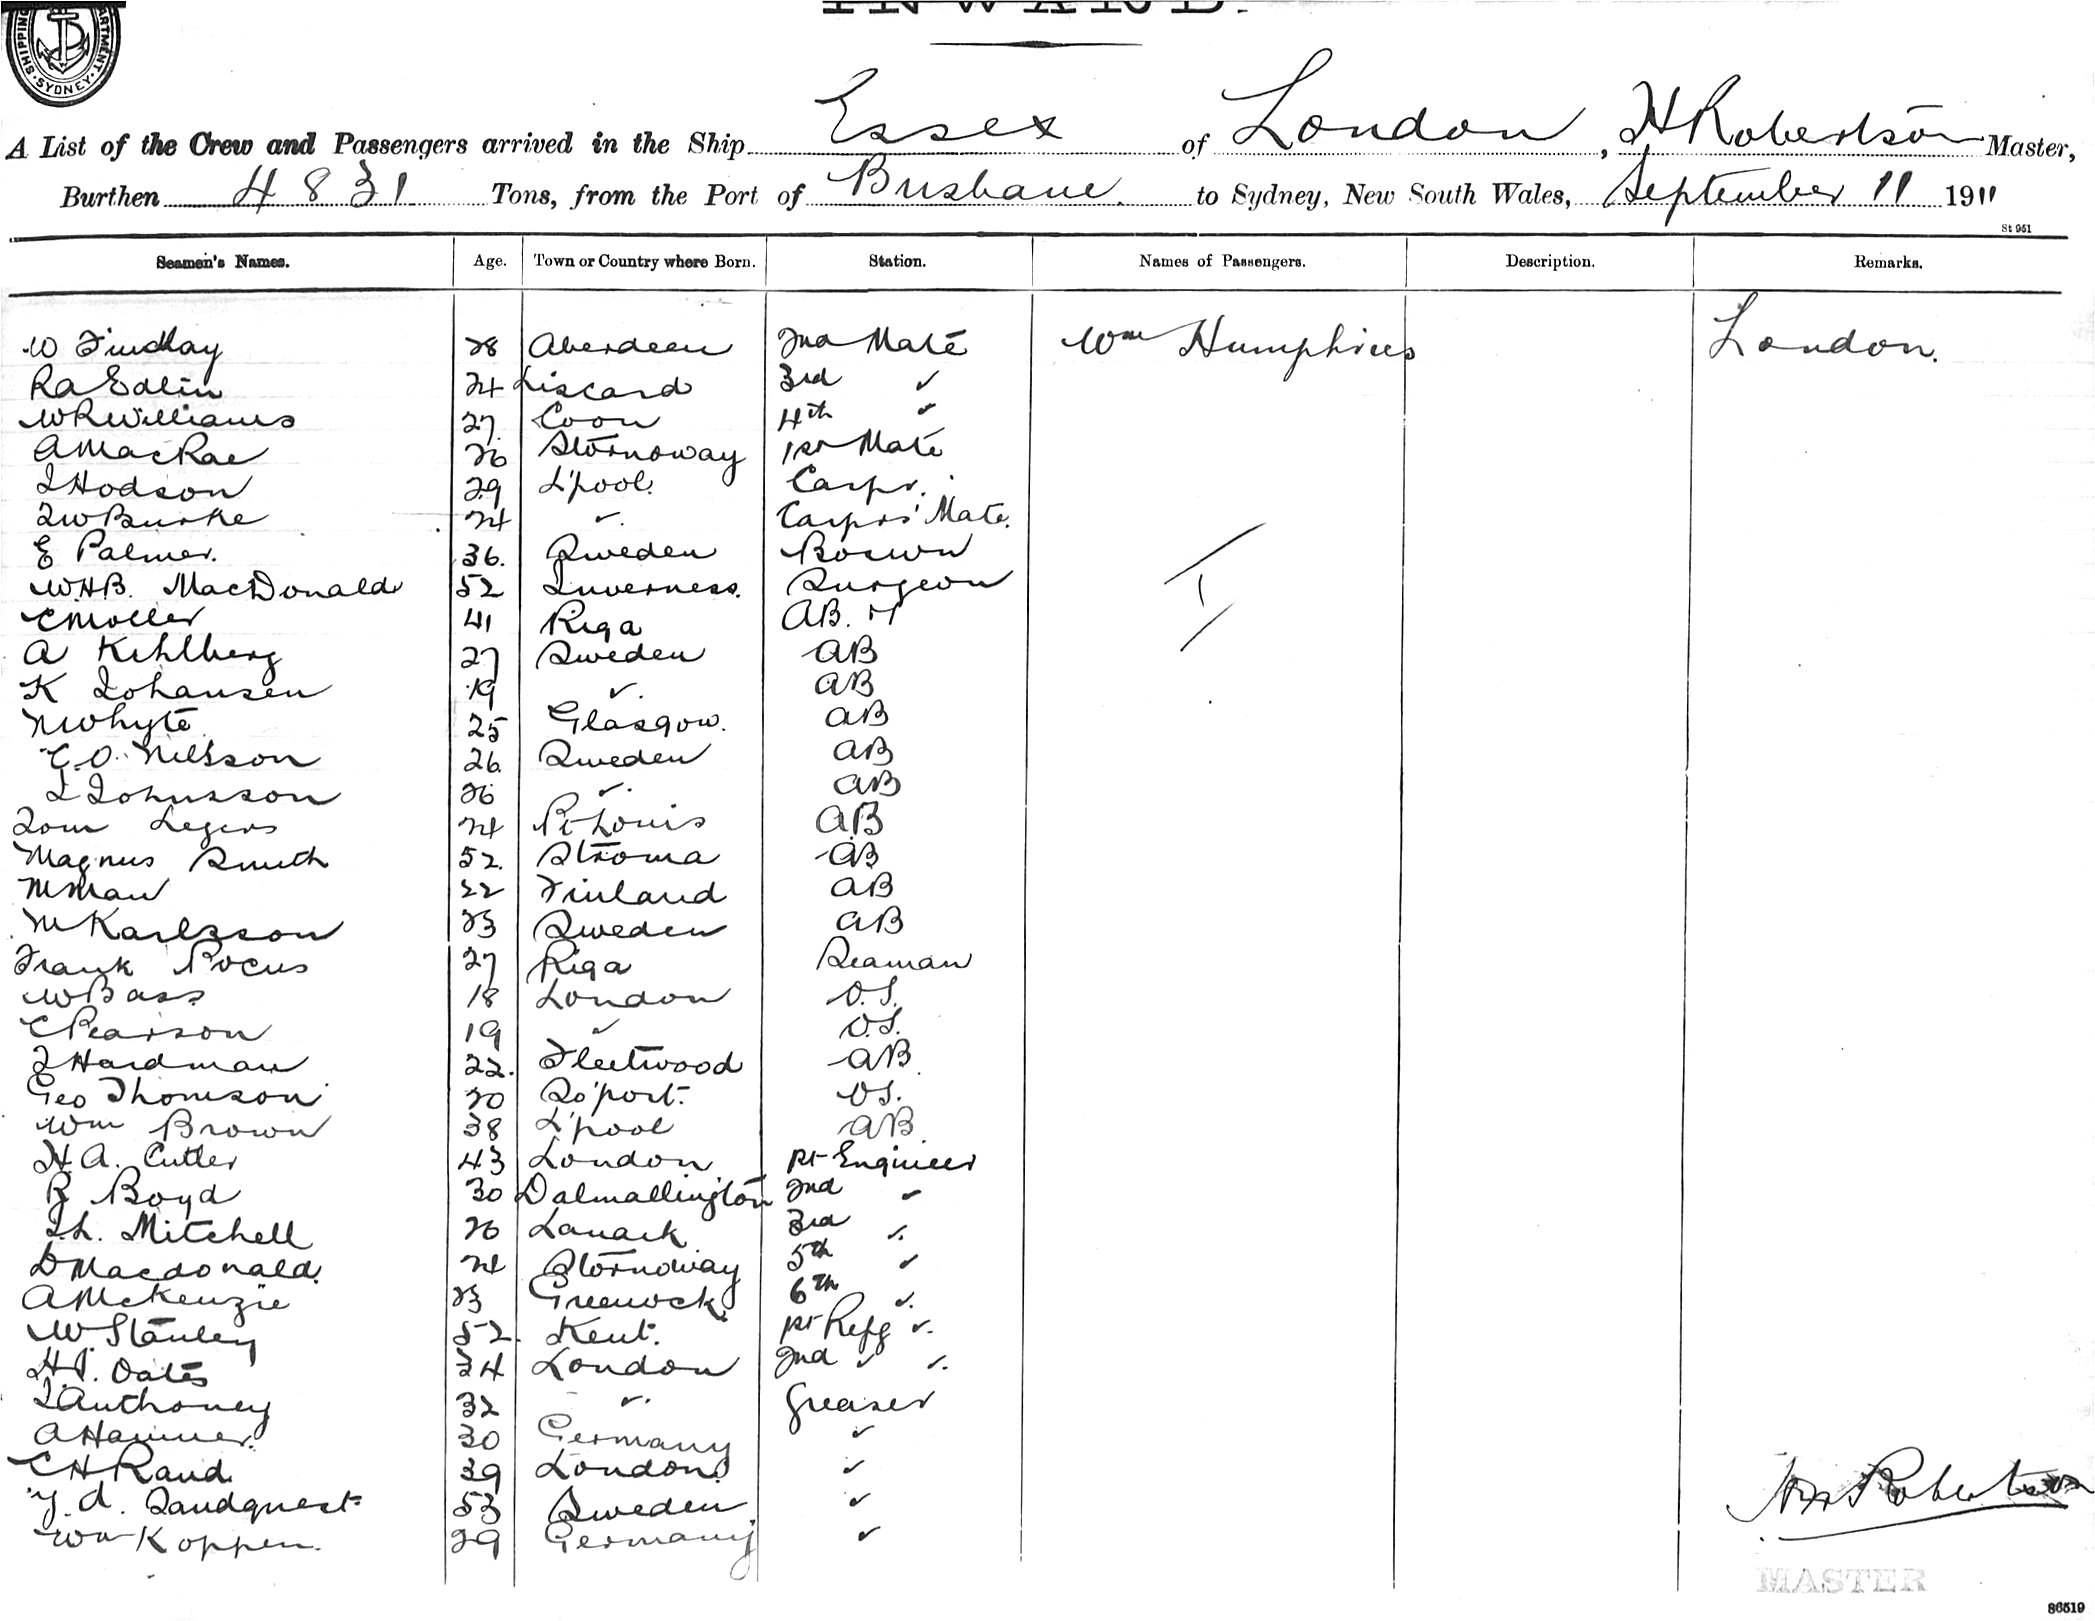 SHIPPING DEPARTMENT · SYDNEY ·
INWARD.
A List of the Crew and Passengers arrived in the Ship Essex of London, H Robertson Master,
Burthen 4831 Tons, from the Port of Brisbane. to Sydney, New South Wales, September 11 1911
St 951
Seamen's Names. Age. Town or Country where Born. Station. Names of Passengers. Description. Remarks.
W Findlay 28 Aberdeen 2nd Mate Wm Humphries London.
Ra Edlin 24 Liscard 3rd ✓
WR Williams 27 Coon 4th ✓
A MacRae 26 Stornoway 1st Mate
J Hodson 29 L'pool. Carpr.
JW Burke 24 ✓. Carprs' Mate.
E Palmer. 36. Sweden Boswn
W.H.B. MacDonald 52 Inverness. Surgeon
C Moller 41 Riga AB.
A Kihlberg 27 Sweden AB
K Johansen 19 ✓. AB
N Whyte 25 Glasgow. AB
C.O. Nilsson 26. Sweden AB
J Johnsson 26 ✓. AB
Tom Legers 24 Pt Louis AB
Magnus Smith 52. Stroma AB
M Man 22 Finland AB
M Karlsson 23 Sweden AB
Frank Pocus 27 Riga Seaman
W Bass 18 London O.S.
C Pearson 19 ✓ O.S.
J Hardman 22. Fleetwood AB.
Geo Thomson 20 So'port. OS.
Wm Brown 38 L'pool AB.
H.A. Cutler 43 London 1st Engineer
R Boyd 30 Dalmallington 2nd ✓
J.L. Mitchell 26 Lanark 3rd ✓.
D Macdonald. 24 Stornoway 5th ✓
A McKenzie 23 Greenock 6th ✓.
W Stanley 52. Kent. 1st Refg ✓.
H.P. Oates 34 London 2nd ✓ ✓.
J Anthoney 32 ✓. Greaser
A Hammer. 30 Germany ✓
CH Rand 39 London ✓
Y.A. Sandquest 53 Sweden ✓
Wm Koppen. 29 Germany ✓
H Robertson
MASTER
86519